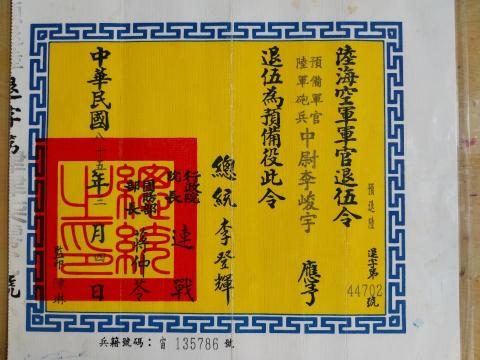 陸海空軍軍官退伍令
預退陸
退字第
44702
號
預備軍官
陸軍砲兵
中尉李峻宇
應予
退伍為預備役此令
總統 李登輝
行政院
院長 連戰
國防部
部長 蔣仲苓
中華民國 十五年 月 日
監印
總統之印
兵籍號碼： 135786 號
字第
號